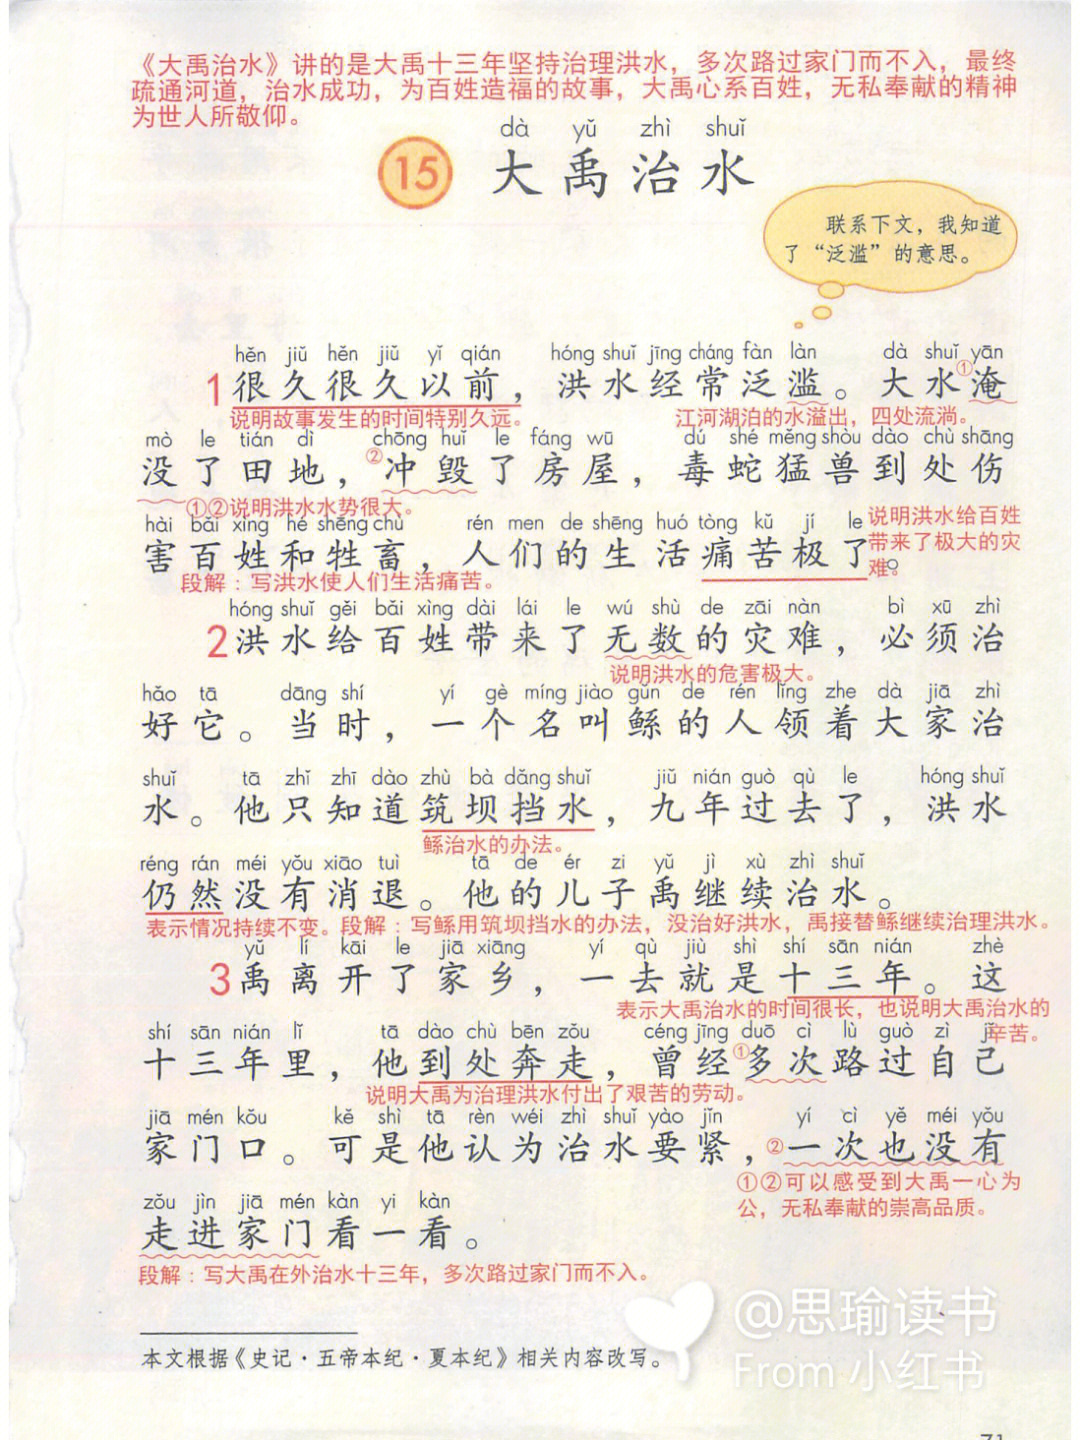 《大禹治水》讲的是大禹十三年坚持治理洪水，多次路过家门而不入，最终
疏通河道，治水成功，为百姓造福的故事，大禹心系百姓，无私奉献的精神
为世人所敬仰。
dà yǔ zhì shuǐ
15 大禹治水
联系下文，我知道
了“泛滥”的意思。
hěn jiǔ hěn jiǔ yǐ qián hóng shuǐ jīng cháng fàn làn dà shuǐ yān
1 很久很久以前，洪水经常泛滥。大水①淹
说明故事发生的时间特别久远。 江河湖泊的水溢出，四处流淌。
mò le tián dì chōng huǐ le fáng wū dú shé měng shòu dào chù shāng
没了田地，②冲毁了房屋，毒蛇猛兽到处伤
①②说明洪水水势很大。
hài bǎi xìng hé shēng chù rén men de shēng huó tòng kǔ jí le
害百姓和牲畜，人们的生活痛苦极了。
说明洪水给百姓
带来了极大的灾
难。
段解：写洪水使人们生活痛苦。
hóng shuǐ gěi bǎi xìng dài lái le wú shù de zāi nàn bì xū zhì
2 洪水给百姓带来了无数的灾难，必须治
说明洪水的危害极大。
hǎo tā dāng shí yí gè míng jiào gǔn de rén lǐng zhe dà jiā zhì
好它。当时，一个名叫鲧的人领着大家治
shuǐ tā zhǐ zhī dào zhù bà dǎng shuǐ jiǔ nián guò qù le hóng shuǐ
水。他只知道筑坝挡水，九年过去了，洪水
鲧治水的办法。
réng rán méi yǒu xiāo tuì tā de ér zi yǔ jì xù zhì shuǐ
仍然没有消退。他的儿子禹继续治水。
表示情况持续不变。段解：写鲧用筑坝挡水的办法，没治好洪水，禹接替鲧继续治理洪水。
yǔ lí kāi le jiā xiāng yí qù jiù shì shí sān nián zhè
3 禹离开了家乡，一去就是十三年。这
表示大禹治水的时间很长，也说明大禹治水的
辛苦。
shí sān nián lǐ tā dào chù bēn zǒu céng jīng duō cì lù guò zì jǐ
十三年里，他到处奔走，曾经①多次路过自己
说明大禹为治理洪水付出了艰苦的劳动。
jiā mén kǒu kě shì tā rèn wéi zhì shuǐ yào jǐn yí cì yě méi yǒu
家门口。可是他认为治水要紧，②一次也没有
①②可以感受到大禹一心为
公，无私奉献的崇高品质。
zǒu jìn jiā mén kàn yi kàn
走进家门看一看。
段解：写大禹在外治水十三年，多次路过家门而不入。
本文根据《史记·五帝本纪·夏本纪》相关内容改写。
@思瑜读书
From 小红书